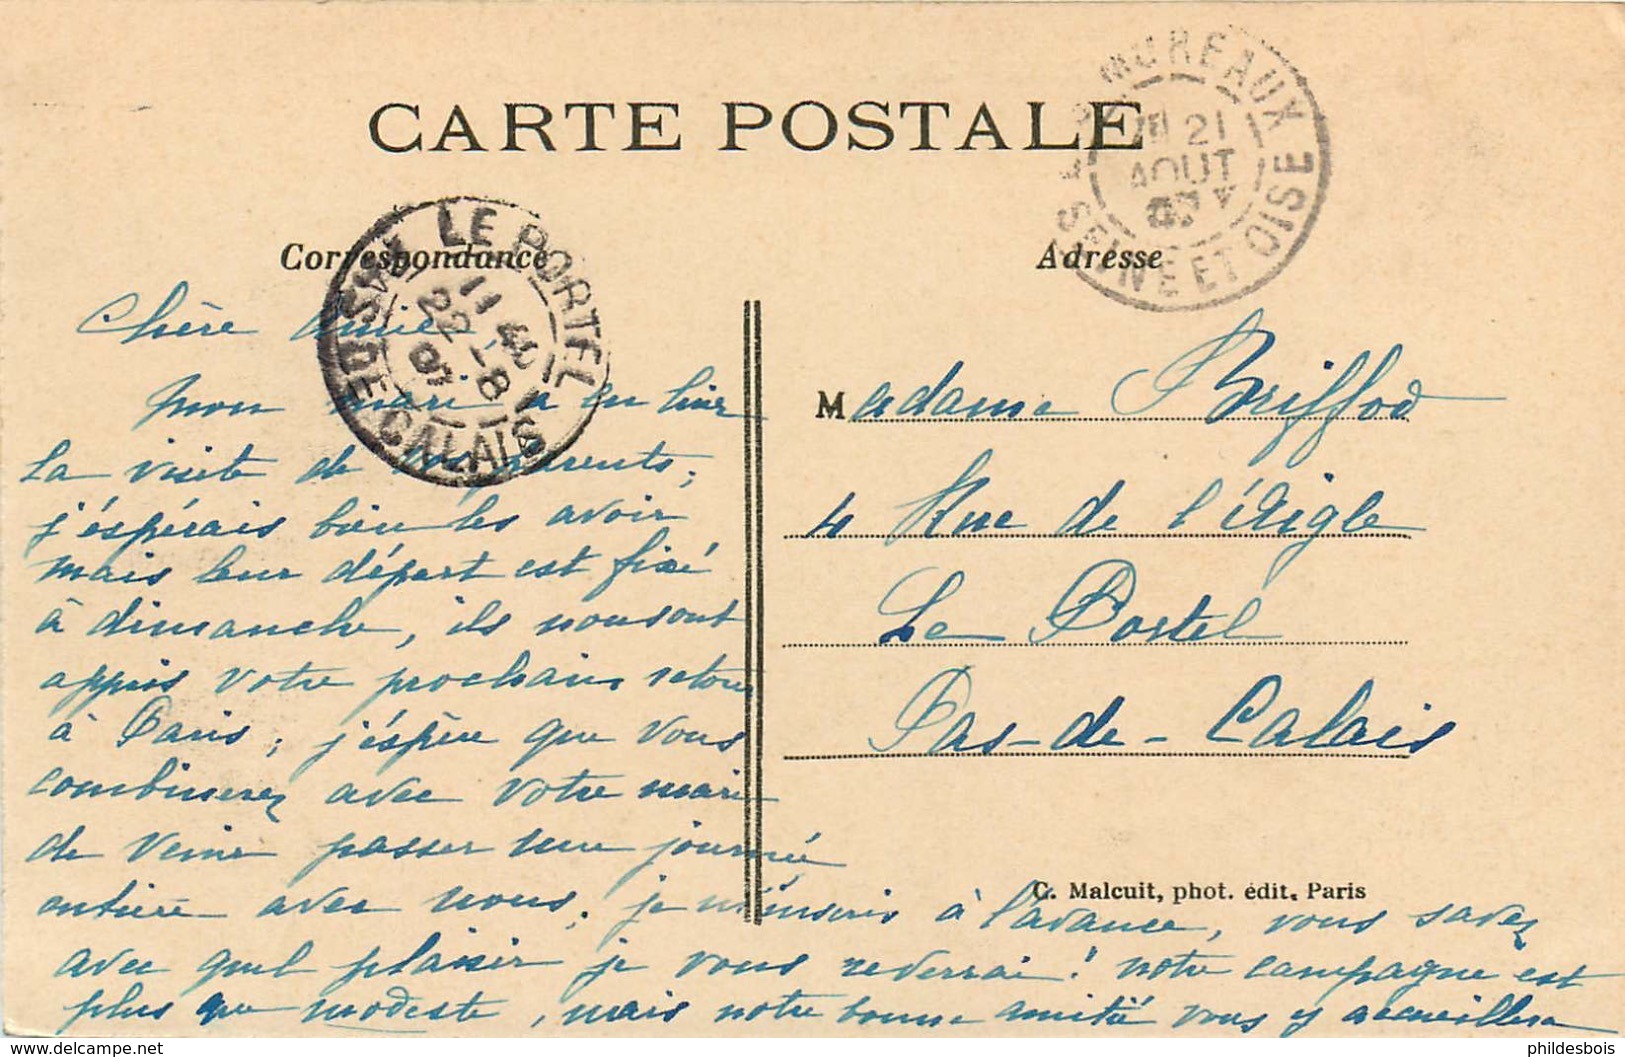 CARTE POSTALE
LES MUREAUX
21
AOUT
07
SEINE ET OISE
LE PORTEL
11 45
22-8
07
PAS DE CALAIS
Correspondance
Adresse
Chère Amie,
Mon mari a eu hier
la visite de vos parents,
j'éspérais bien les avoir
mais leur départ est fixé
à dimanche, ils nous ont
appris votre prochain retour
à Paris; j'éspère que vous
combinerez avec votre mari
de venir passer une journée
entière avec nous, je m'inscris à l'avance, vous savez
avec quel plaisir je vous reverrai! notre campagne est
plus que modeste, mais notre bonne amitié vous y accueillera
Madame Briffod
4 Rue de l'Aigle
Le Portel
Pas-de-Calais
C. Malcuit, phot. édit. Paris
phildesbois
www.delcampe.net